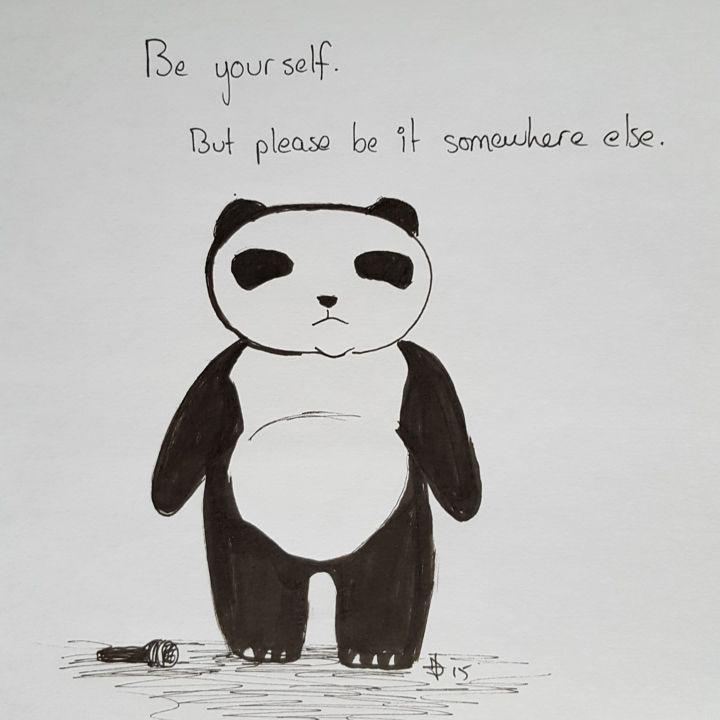 Be yourself.
But please be it somewhere else.
15